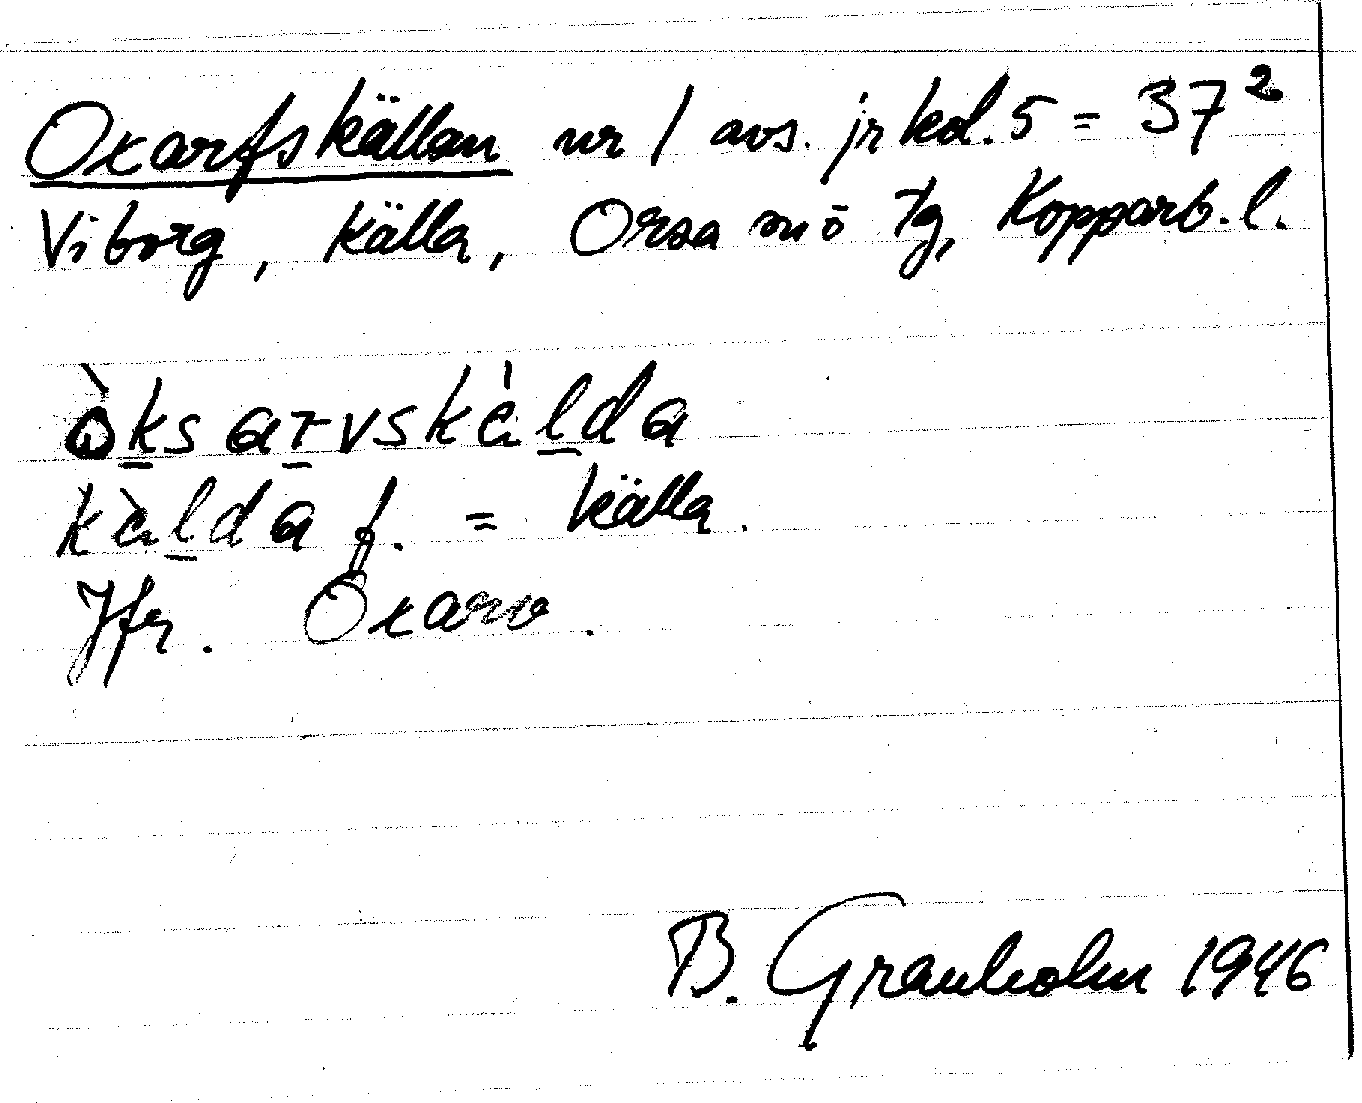 Oxarfskällan nr 1 avs. jr kol. 5 = 37²
Viborg, källa, Orsa snö tg, Kopparb. l.
òksarvskèlda
kèlda f. = källa.
Jfr. Oxarv.
B. Granholm 1946